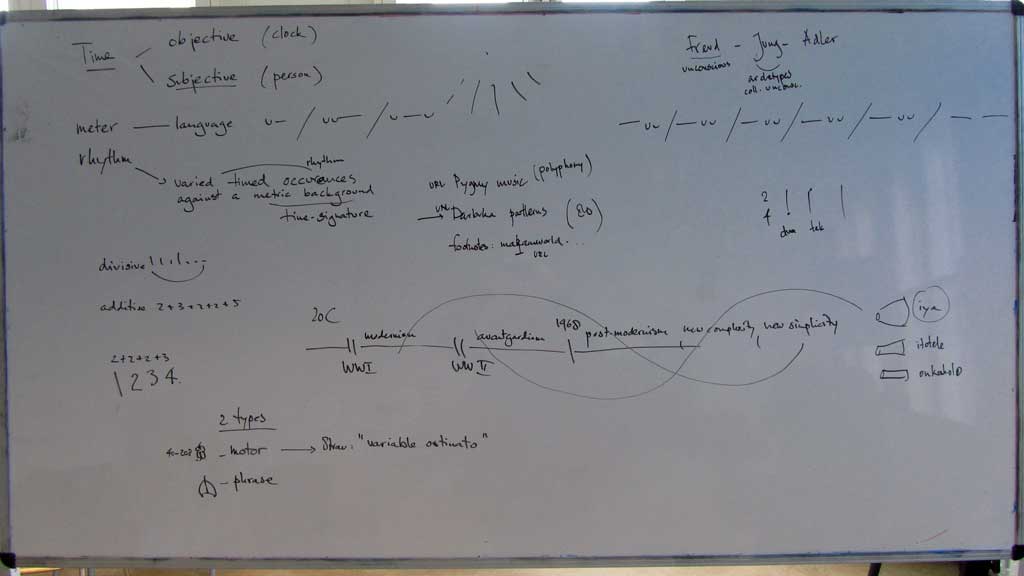 Time
objective (clock)
subjective (person)
meter — language
rhythm
rhythm
varied timed occurences
against a metric background
time-signature
divisive
additive 2+3+2+2+5
2+2+2+3
1 2 3 4.
2 types
- motor → Strav: "variable ostinato"
- phrase
URL Pygmy music (polyphony)
URL
→ Darbuka patterns (80)
footnotes: makamworld...
URL
20C
modernism
avantgardism
1968
post-modernism
new complexity
new simplicity
WWI
WWII
Freud - Jung - Adler
unconscious
archetypes
coll. uncons.
2
4
dum
tek
iya
itotele
onkokolo